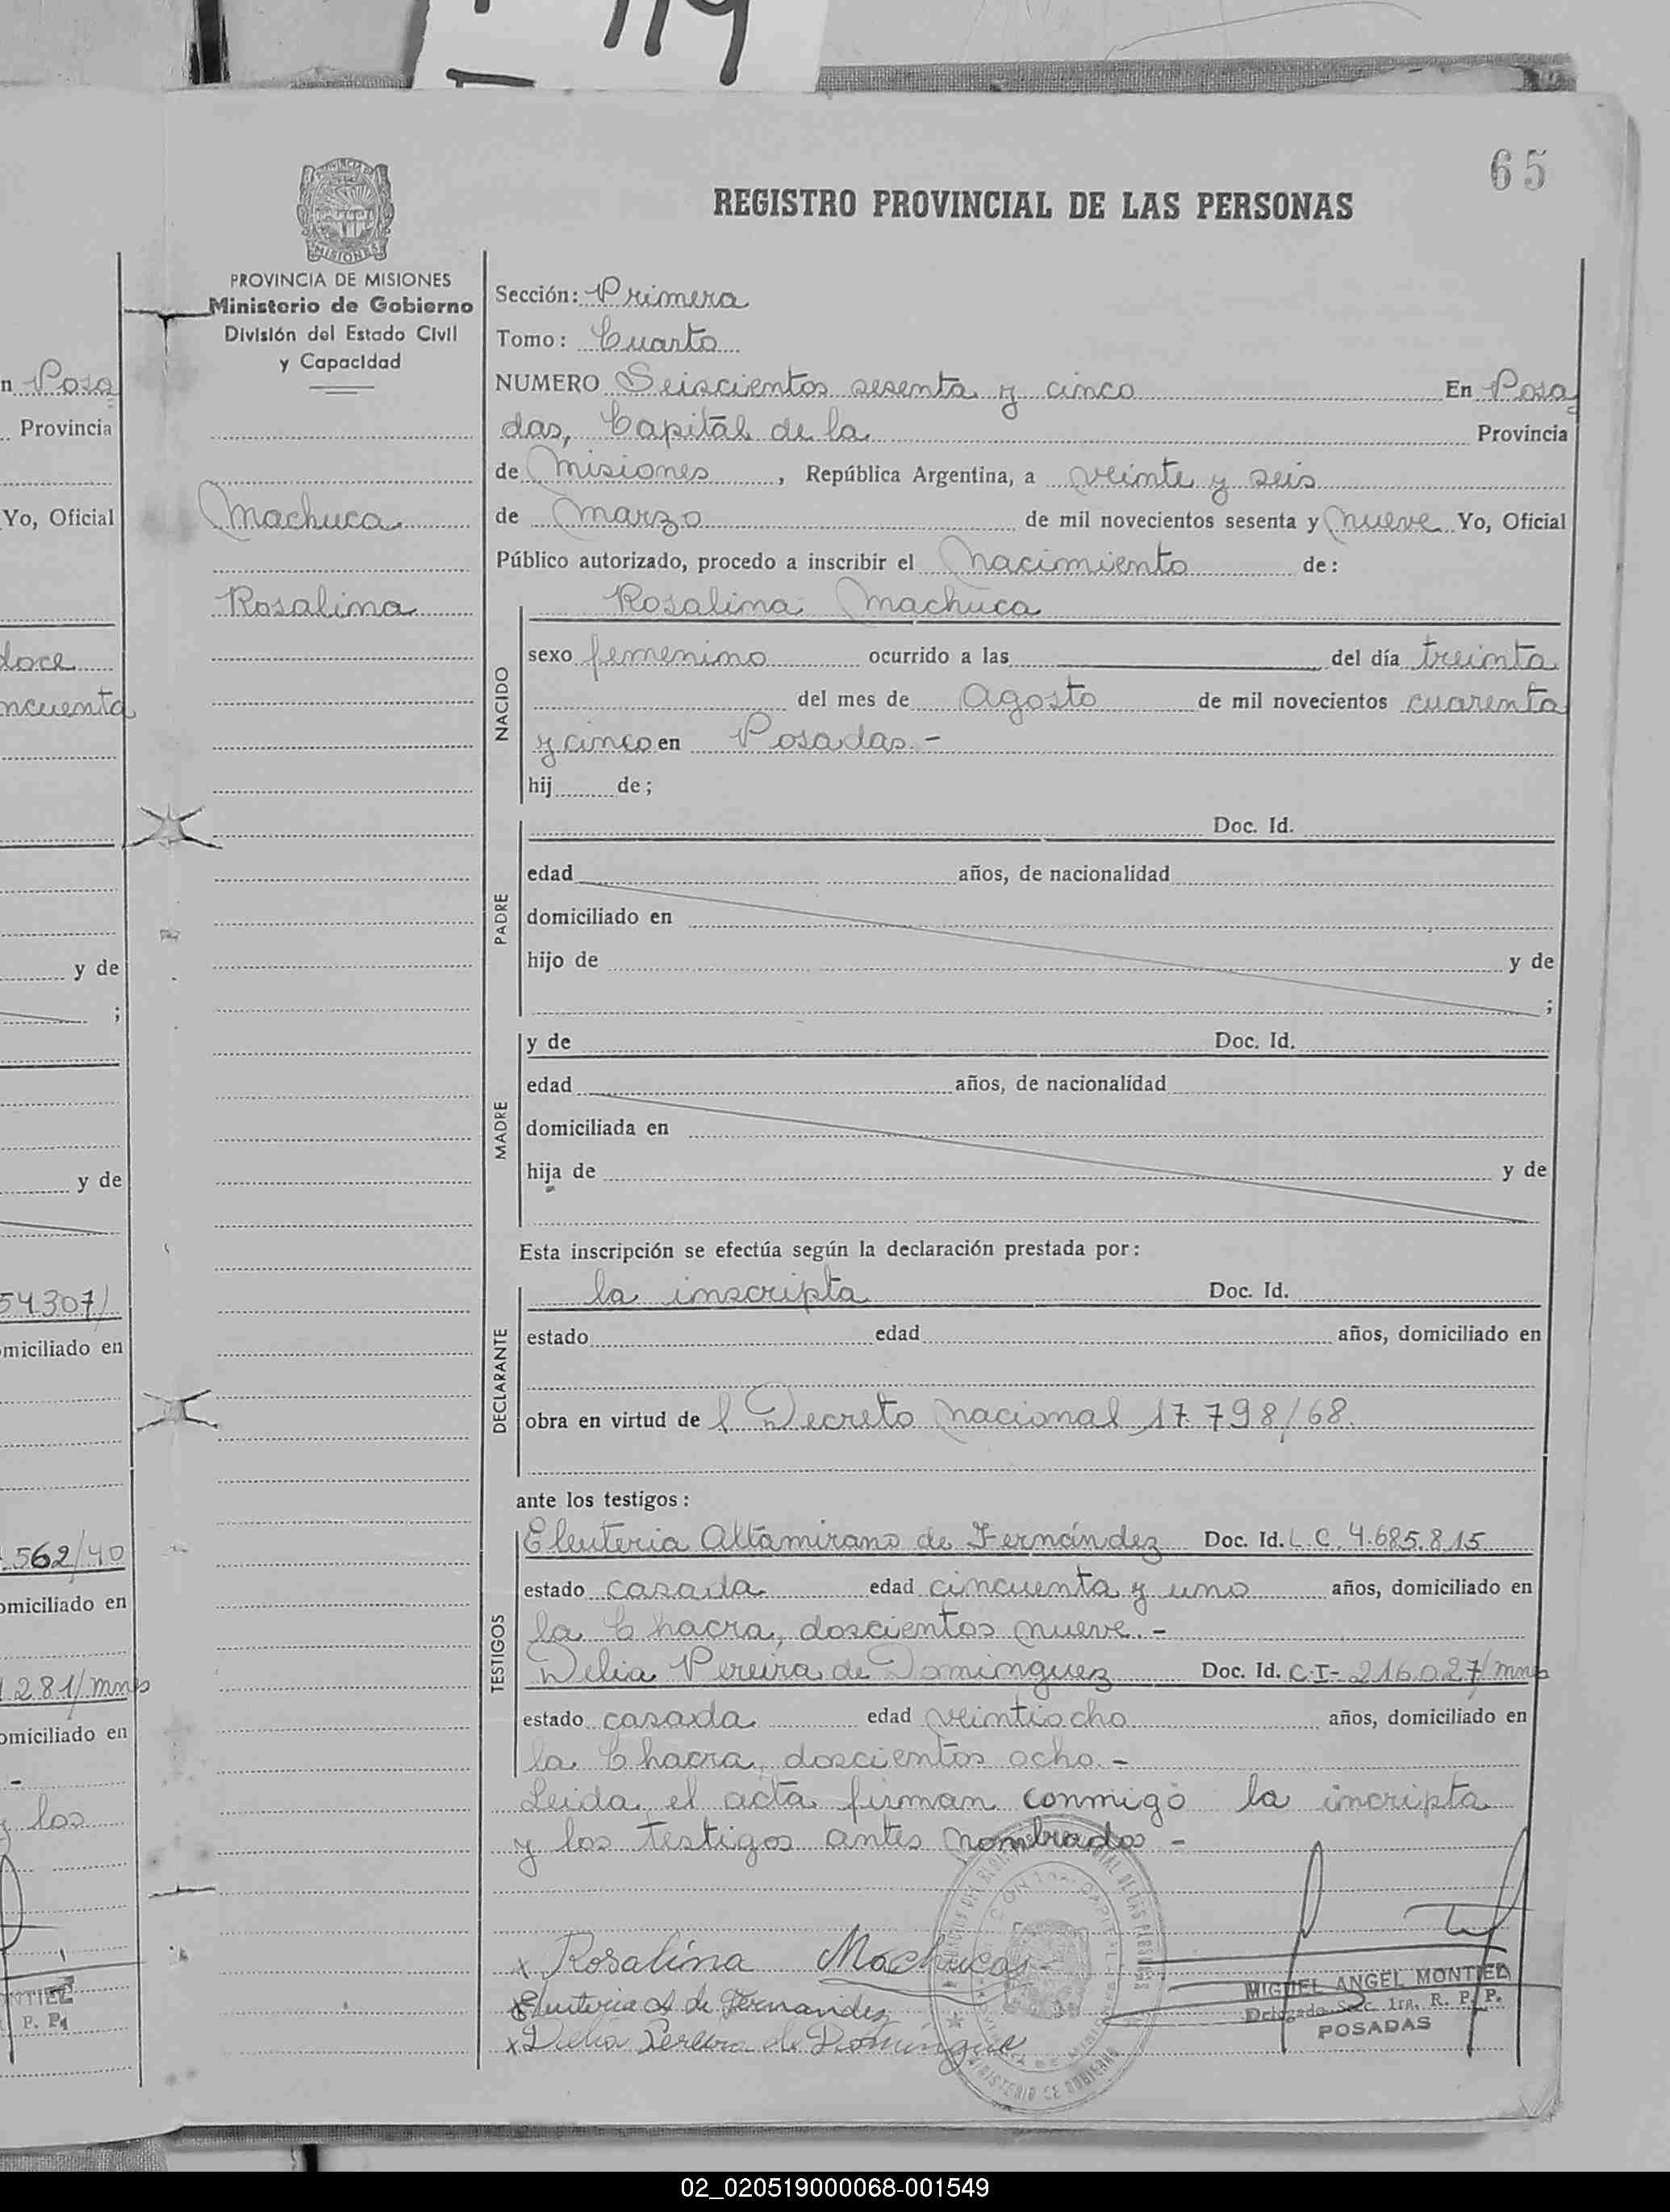 119
65
REGISTRO PROVINCIAL DE LAS PERSONAS
PROVINCIA DE MISIONES
Ministerio de Gobierno
División del Estado Civil
y Capacidad
Machuca
Rosalina
Sección: Primera
Tomo: Cuarto
NUMERO Seiscientos sesenta y cinco En Posa
das, Capital de la Provincia
de Misiones, República Argentina, a veinte y seis
de Marzo de mil novecientos sesenta y nueve Yo, Oficial
Público autorizado, procedo a inscribir el Nacimiento de:
Rosalina Machuca
NACIDO
sexo femenino ocurrido a las del día treinta
del mes de Agosto de mil novecientos cuarenta
y cinco en Posadas.-
hij de;
PADRE
Doc. Id.
edad años, de nacionalidad
domiciliado en
hijo de y de
;
MADRE
y de Doc. Id.
edad años, de nacionalidad
domiciliada en
hija de y de
Esta inscripción se efectúa según la declaración prestada por:
DECLARANTE
la inscripta Doc. Id.
estado edad años, domiciliado en
obra en virtud de l Decreto Nacional 17.798/68.
ante los testigos:
TESTIGOS
Eleuteria Altamirano de Fernández Doc. Id. L.C. 4.685.815
estado casada edad cincuenta y uno años, domiciliado en
la Chacra, doscientos nueve.-
Delia Pereira de Dominguez Doc. Id. C-I- 216.027/mns
estado casada edad veintiocho años, domiciliado en
la Chacra, doscientos ocho.-
Leida el acta firman conmigo la incripta
y los testigos antes nombrados-
x Rosalina Machuca
x Eluiteria A de Fernandez
x Delia Pereira de Domingue
MIGUEL ANGEL MONTIEL
Delegado Secc. 1ra. R. P. P.
POSADAS
MINISTERIO DE GOBIERNO
n Posa
Provincia
Yo, Oficial
doce
ncuenta
y de
;
y de
54.307/
omiciliado en
562/40
omiciliado en
281/mns
omiciliado en
-
y los
NTIEL
P. P.
02_020519000068-001549